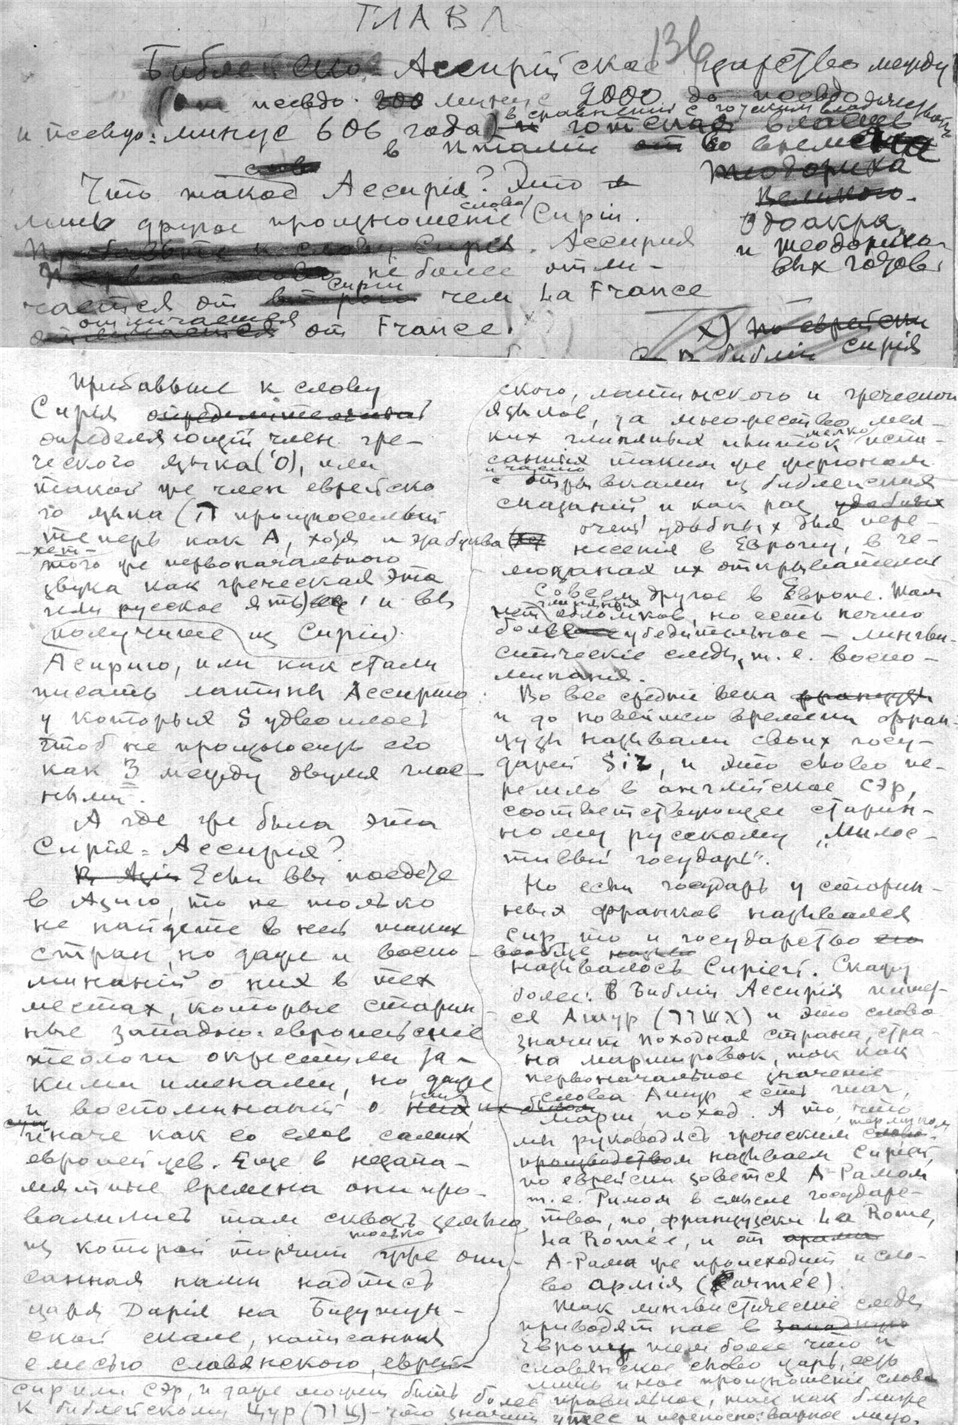 ГЛАВА
136
Библейское Ассирійское царство между
(от псевдо-минус 2000 до псевдо
и псевдо-минус 606 года) в сравнении с готской властью
в Италии во времена
Одоакра
и Теодориха
Что такое Ассирія? Это
лишь другое произношение слова Сирія.
Ассирия
не более отли-
чается от Сиріи чем La France
отличается от France.
х) по еврейски
в библіи Сирія
Прибавьте к слову
Сирія
определяющій член гре-
ческого языка (‘О), или
такой же член еврейско
го языка (ה произносимый
теперь как А, хотя и эта буква
того же первоначального
звука как греческая эта
или русское ять) и вы
получите из Сиріи
Асирію, или как стали
писать латины Ассирию
у которых S удвоилось
чтоб не произносить его
как З между двумя глас-
ными.
А где же была эта
Сирія-Ассирия?
Если вы поедете
в Азию, то не только
не найдете в ней таких
стран, но даже и воспо-
минаній о них в тех
местах, которые старин-
ные западно-европейские
теологи окрестили та-
кими именами, но даже
и воспоминаний о них
иначе как со слов самих
европейцев. Еще в незапа-
мятные времена они про-
валились там сквозь землю,
из которой торчит только уже опи-
санная нами надпись
царя Дарія на Бигутун-
ской скале, написанная
смесью славянского, еврей-
ского, латинского и греческого
языков, да множество мел-
ких глиняных плиток мелко испи-
санных таким же жаргоном
и часто с отрывками из библейских
сказаний и как раз
очень удобных для пере-
несения в Европу, в че-
моданах их открывателей
Совсем другое в Европе. Там
нет глиняных обломков, но есть нечто
более убедительное – лингви-
стическіе следы, т. е. воспо-
минания.
Во все средніе века
и до новейшего времени фран-
цузы называли своих госу-
дарей Sir, и это слово пе-
решло в английское Сэр,
соответствующее старин-
ному русскому „милос-
тивый государь“.
Но если государь у старин-
ных франков назывался
Сир то и государство
вообще называлось Сиріей. Скажу
более: В Библіи Ассирія пишет-
ся Ашур (אשור) и это слово
значит походная страна, стра-
на маршировок, так как
первоначальное значение
слова Ашур есть шаг,
марш поход. А то, что
мы руководясь греческим
называем Сиріей,
по еврейски зовется А-Рамом
т. е. Римом в смысле государс-
тва, по французски La Rome,
La Romée, и от
А-Рама же происходит и сло-
во армія (l'armée).
Так лингвистическіе следы
приводят нас в
Европу тем более что и
славянское слово царь, есть
лишь иное произношение слова
сир или сэр, и даже может быть более правильное, так как ближе
к библейскому Цур (צור) – что значит утес и переносно: важное лицо.